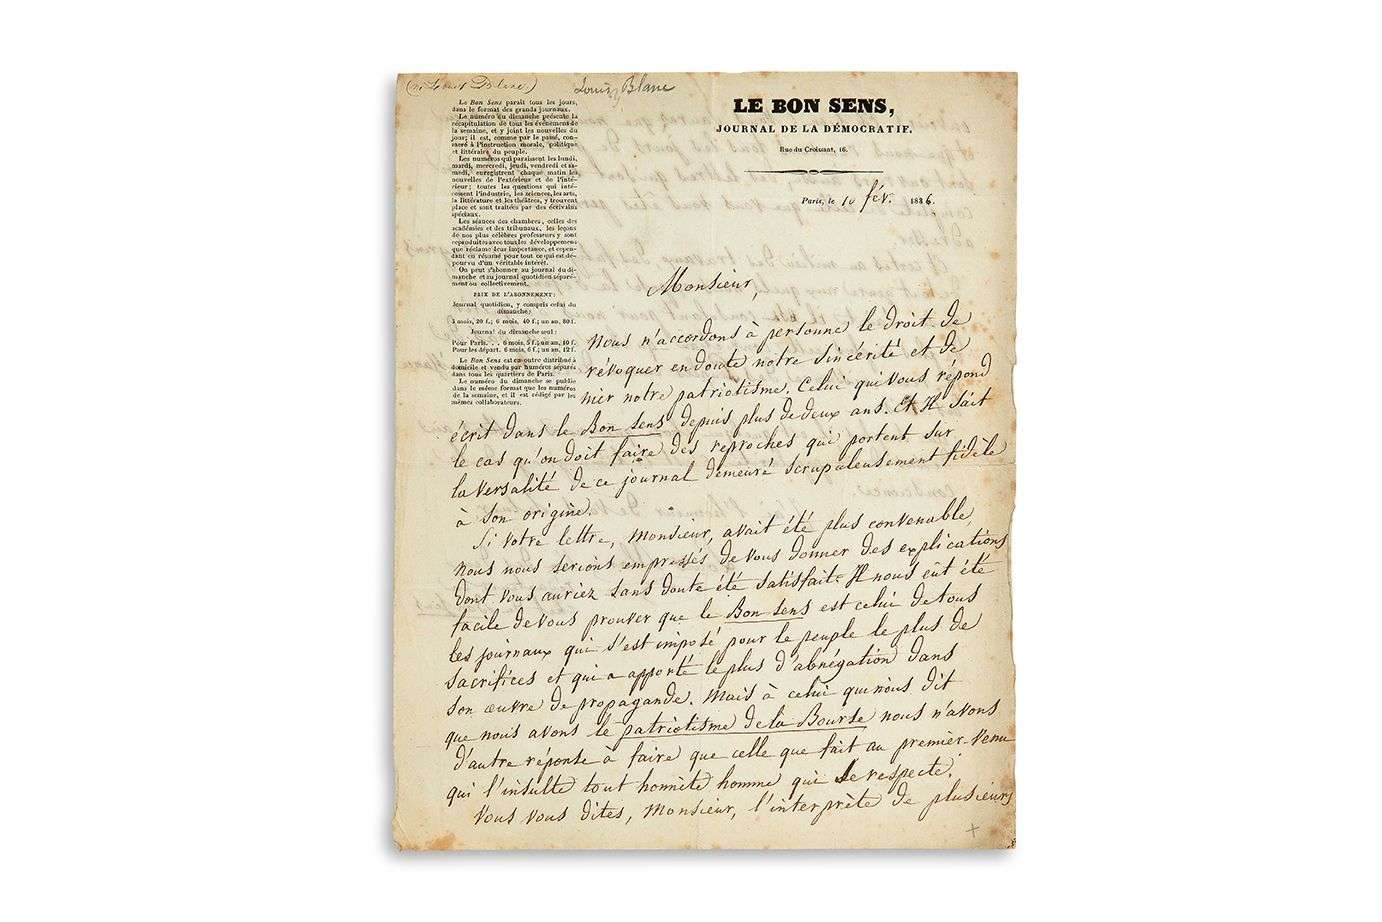 (M. Louis Blanc)
Louis Blanc
Le Bon Sens paraît tous les jours,
dans le format des grands journaux.
Le numéro du dimanche présente la
récapitulation de tous les événemens de
la semaine, et y joint les nouvelles du
jour; il est, comme par le passé, con-
sacré à l'instruction morale, politique
et littéraire du peuple.
Les numéros qui paraissent les lundi,
mardi, mercredi, jeudi, vendredi et sa-
medi, enregistrent chaque matin les
nouvelles de l'extérieur et de l'inté-
rieur; toutes les questions qui inté-
ressent l'industrie, les sciences, les arts,
la littérature et les théâtres, y trouvent
place et sont traitées par des écrivains
spéciaux.
Les séances des chambres, celles des
académies et des tribunaux, les leçons
de nos plus célèbres professeurs y sont
reproduites avec tous les développemens
que réclame leur importance, et cepen-
dant en résumé pour tout ce qui est dé-
pourvu d'un véritable intérêt.
On peut s'abonner au journal du di-
manche et au journal quotidien séparé-
ment ou collectivement.
PRIX DE L'ABONNEMENT:
Journal quotidien, y compris celui du
dimanche;
3 mois, 20 f.; 6 mois, 40 f.; un an, 80 f.
Journal du dimanche seul:
Pour Paris. . . 6 mois, 5 f.; un an, 10 f.
Pour les départ. 6 mois, 6 f.; un an, 12 f.
Le Bon Sens est en outre distribué à
domicile et vendu par numéros séparés
dans tous les quartiers de Paris.
Le numéro du dimanche se publie
dans le même format que les numéros
de la semaine, et il est rédigé par les
mêmes collaborateurs.
LE BON SENS,
JOURNAL DE LA DÉMOCRATIE.
Rue du Croissant, 16.
Paris, le 10 fév. 1836.
Monsieur,
Nous n'accordons à personne le droit de
révoquer en doute notre sincérité et de
nier notre patriotisme. Celui qui vous répond
écrit dans le Bon sens depuis plus de deux ans. Et Il sait
le cas qu'on doit faire des reproches qui portent sur
la versalité de ce journal demeuré scrupuleusement fidèle
à son origine.
Si votre lettre, Monsieur, avait été plus convenable,
nous nous serions empressés de vous donner des explications
dont vous auriez sans doute été satisfait. Il nous eût été
facile de vous prouver que le Bon sens est celui de tous
les journaux qui s'est imposé pour le peuple le plus de
sacrifices et qui a apporté le plus d'abnégation dans
son œuvre de propagande. Mais à celui qui nous dit
que nous avons le patriotisme de la Bourse nous n'avons
d'autre réponse à faire que celle que fait au premier venu
qui l'insulte tout honnête homme qui se respecte.
Vous vous dites, Monsieur, l'interprète de plusieurs